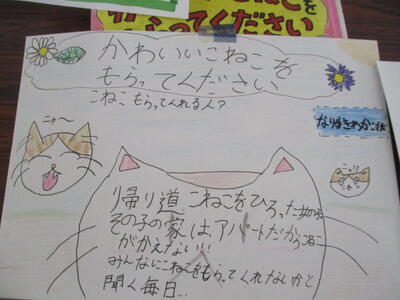 ってください
かわいいこねこを
もらってください
こねこもらってくれる人?
なりゆきわかこ作
ニャ〜
帰り道 こねこをひろった女の子
その子の家はアパートだからねこ
がかえない!!
みんなにこねこをもらってくれないかと
聞く毎日...